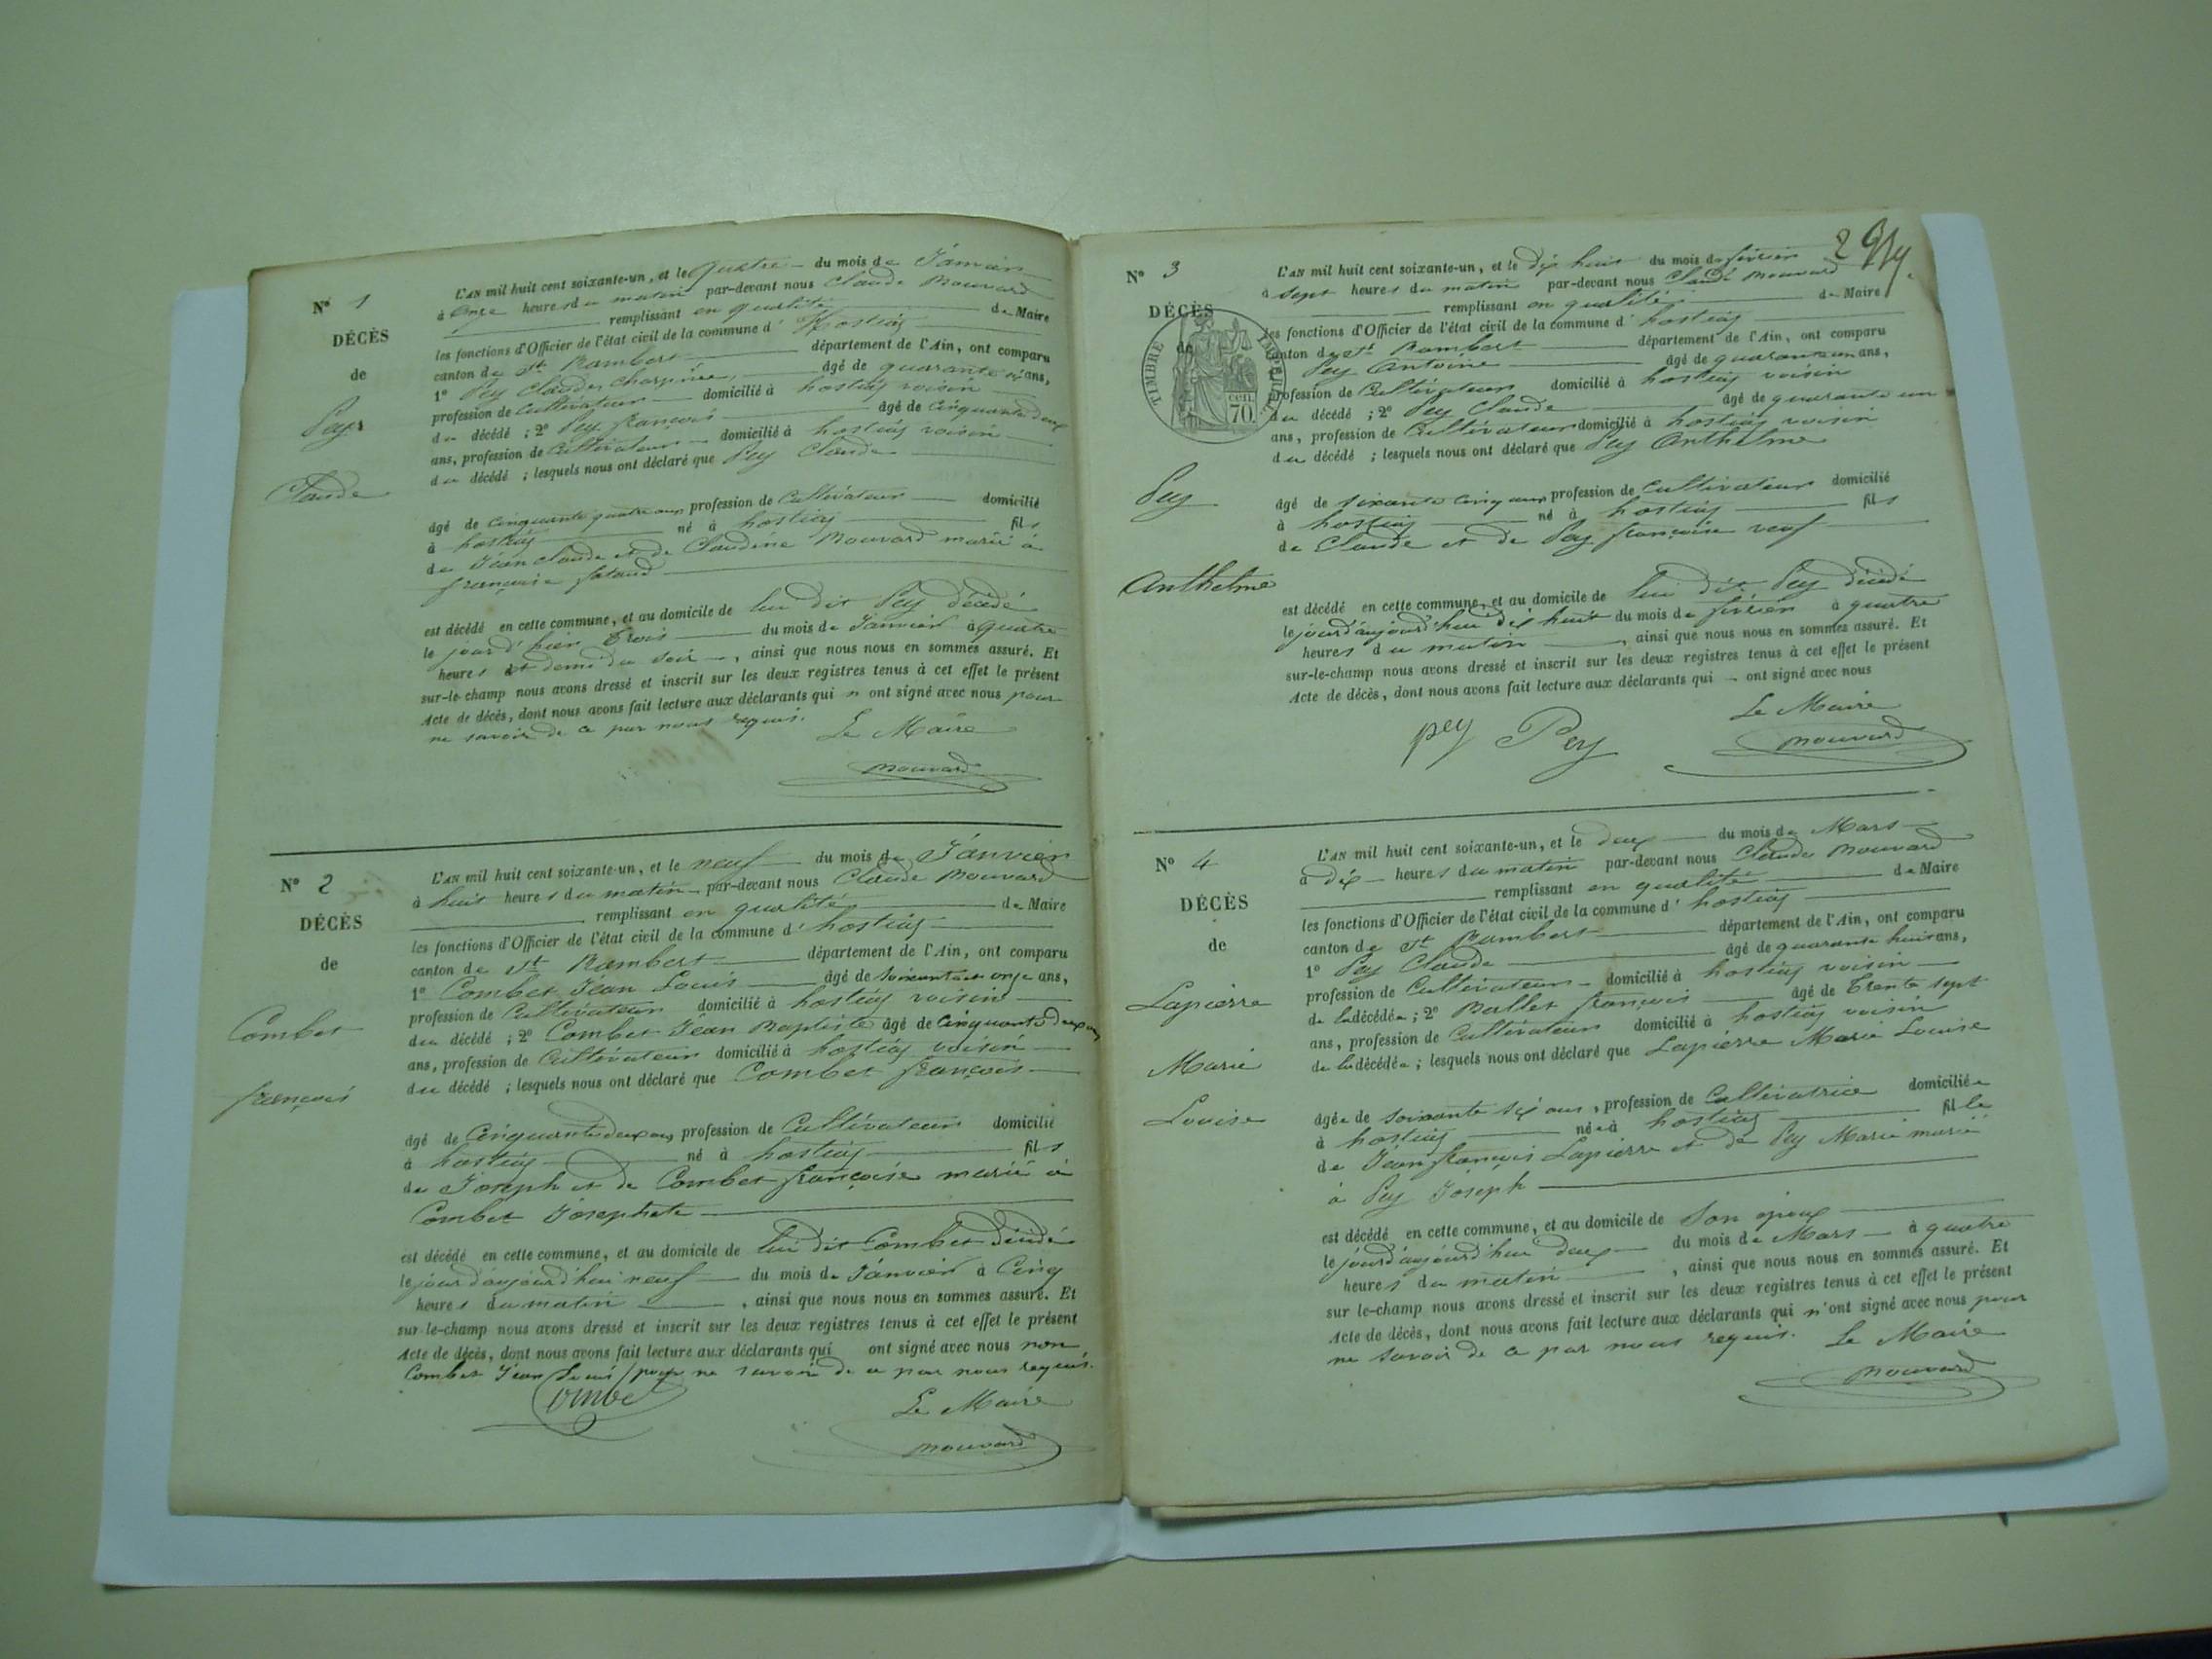 N° 1
DÉCÈS
de
Pey
Claude
L'AN mil huit cent soixante-un, et le quatre du mois de Janvier
à onze heures du matin par-devant nous Claude Mouvard
remplissant en qualité de Maire
les fonctions d'Officier de l'état civil de la commune d' Hostiaz
canton de St Rambert département de l'Ain, ont comparu
1° Pey Claude, Charpine, âgé de quarante six ans,
profession de Cultivateur domicilié à hostiaz voisin
du décédé ; 2° Pey françois âgé de Cinquante deux
ans, profession de Cultivateur domicilié à hostiaz voisin
du décédé ; lesquels nous ont déclaré que Pey Claude
âgé de Cinquante quatre ans profession de Cultivateur domicilié
à hostiaz né à hostiaz fils
de Jean Claude et de Claudine Mouvard marié à
françoise
est décédé en cette commune, et au domicile de lui dit Pey décédé
le jour d'hier trois du mois de Janvier à quatre
heures et demi du soir, ainsi que nous nous en sommes assuré. Et
sur-le-champ nous avons dressé et inscrit sur les deux registres tenus à cet effet le présent
Acte de décès, dont nous avons fait lecture aux déclarants qui n ont signé avec nous pour
ne savoir de ce par nous requis.
Le Maire
Mouvard
N° 2
DÉCÈS
de
Combet
françois
L'AN mil huit cent soixante-un, et le neuf du mois de Janvier
à huit heures du matin par-devant nous Claude Mouvard
remplissant en qualité de Maire
les fonctions d'Officier de l'état civil de la commune d' hostiaz
canton de St Rambert département de l'Ain, ont comparu
1° Combet Jean Louis âgé de soixante et onze ans,
profession de Cultivateur domicilié à hostiaz voisin
du décédé ; 2° Combet Jean Baptiste âgé de Cinquante deux ans
ans, profession de Cultivateur domicilié à hostiaz voisin
du décédé ; lesquels nous ont déclaré que Combet françois
âgé de Cinquante deux ans, profession de Cultivateur domicilié
à hostiaz né à hostiaz fils
de Joseph et de Combet françoise marié à
Combet Josephate
est décédé en cette commune, et au domicile de lui dit Combet décédé
le jour d'aujourd'hui neuf du mois de Janvier à Cinq
heures du matin, ainsi que nous nous en sommes assuré. Et
sur-le-champ nous avons dressé et inscrit sur les deux registres tenus à cet effet le présent
Acte de décès, dont nous avons fait lecture aux déclarants qui ont signé avec nous non
Combet Jean Louis pour ne savoir de ce par nous requis.
Combet
Le Maire
Mouvard
2
N° 3
DÉCÈS
de
TIMBRE IMPERIAL
70 cen.
Pey
Anthelme
L'AN mil huit cent soixante-un, et le dix huit du mois de février
à sept heures du matin par-devant nous Claude Mouvard
remplissant en qualité de Maire
les fonctions d'Officier de l'état civil de la commune d' hostiaz
canton de St Rambert département de l'Ain, ont comparu
Pey Antoine âgé de quarante un ans,
profession de Cultivateur domicilié à hostiaz voisin
du décédé ; 2° Pey Claude âgé de quarante un
ans, profession de Cultivateur domicilié à hostiaz voisin
du décédé ; lesquels nous ont déclaré que Pey Anthelme
âgé de soixante Cinq ans profession de Cultivateur domicilié
à hostiaz né à hostiaz fils
de Claude et de Pey françoise veuf
est décédé en cette commune, et au domicile de lui dit Pey décédé
le jour d'aujourd'hui dix huit du mois de février à quatre
heures du matin, ainsi que nous nous en sommes assuré. Et
sur-le-champ nous avons dressé et inscrit sur les deux registres tenus à cet effet le présent
Acte de décès, dont nous avons fait lecture aux déclarants qui ont signé avec nous
Le Maire
pey Pey Mouvard
N° 4
DÉCÈS
de
Lapierre
Marie
Louise
L'AN mil huit cent soixante-un, et le deux du mois de Mars
à dix heures du matin par-devant nous Claude Mouvard
remplissant en qualité de Maire
les fonctions d'Officier de l'état civil de la commune d' hostiaz
canton de St Rambert département de l'Ain, ont comparu
1° Pey Claude âgé de quarante huit ans,
profession de Cultivateur domicilié à hostiaz voisin
de la décédée ; 2° Ballet françois âgé de trente sept
ans, profession de Cultivateur domicilié à hostiaz voisin
de la décédée ; lesquels nous ont déclaré que Lapierre Marie Louise
âgée de soixante six ans, profession de Cultivatrice domiciliée
à hostiaz née à hostiaz fille
de Jean françois Lapierre et de Pey Marie marié
à Pey Joseph
est décédé en cette commune, et au domicile de Son époux
le jour d'aujourd'hui deux du mois de Mars à quatre
heures du matin, ainsi que nous nous en sommes assuré. Et
sur le-champ nous avons dressé et inscrit sur les deux registres tenus à cet effet le présent
Acte de décès, dont nous avons fait lecture aux déclarants qui n'ont signé avec nous pour
ne savoir de ce par nous requis.
Le Maire
Mouvard